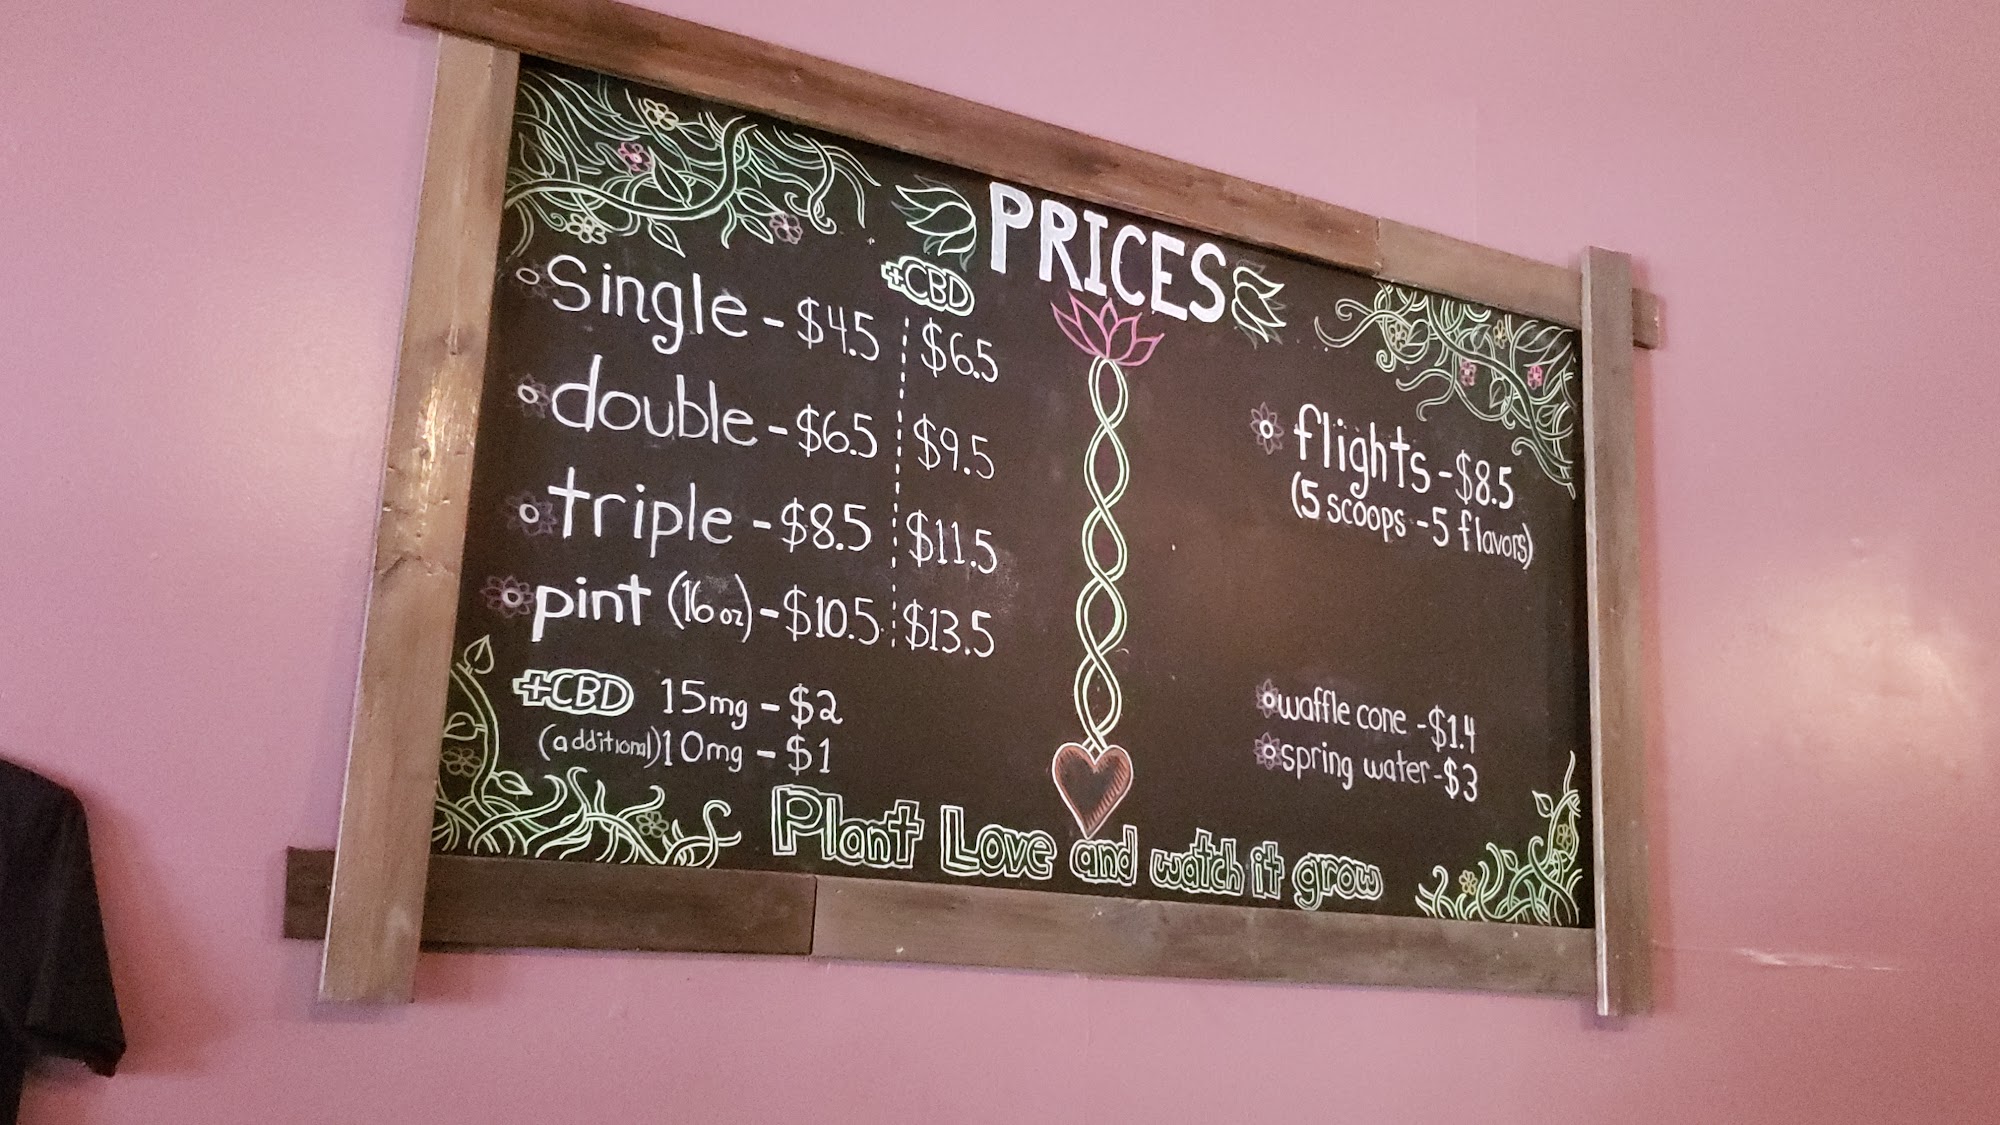 PRICES
+CBD
Single - $4.5 $6.5
double - $6.5 $9.5
triple - $8.5 $11.5
pint (16 oz) - $10.5 $13.5
+CBD 15mg - $2
(additional) 10mg - $1
flights - $8.5
(5 scoops - 5 flavors)
waffle cone - $1.4
spring water - $3
Plant Love and watch it grow